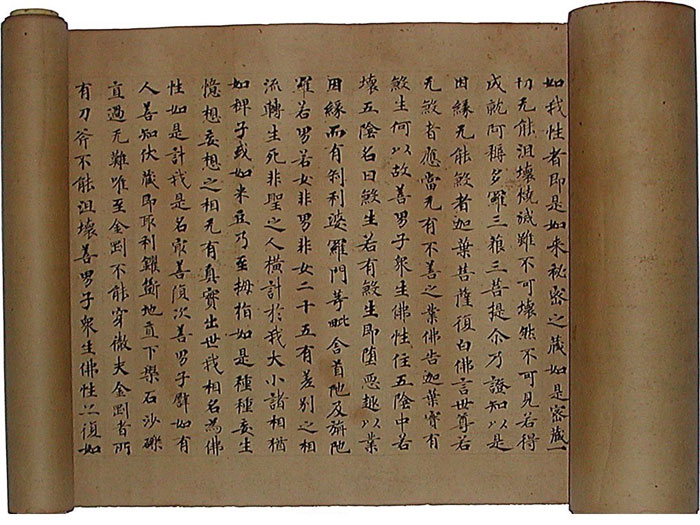 如我性者即是如来秘密之藏如是密藏一
切无能沮壞燒滅雖不可壞然不可見若得
成就阿耨多羅三藐三菩提尒乃證知以是
因緣无能煞者迦葉菩薩復白佛言世尊若
无煞者應當无有不善之業佛告迦葉實有
煞生何以故善男子衆生佛性住五陰中若
壞五陰名曰煞生若有煞生即墮惡趣以業
因緣而有刹利婆羅門等毗舍首陁及旃陁
羅若男若女非男非女二十五有差別之相
流轉生死非聖之人橫計於我大小諸相猶
如稗子或如米豆乃至拇指如是種種妄生
憶想妄想之相无有真實出世我相名為佛
性如是計我是名冣善復次善男子譬如有
人善知伏藏即取利钁斸地直下槃石沙礫
直過无難唯至金剛不能穿徹夫金剛者所
有刀斧不能沮壞善男子衆生佛性亦復如